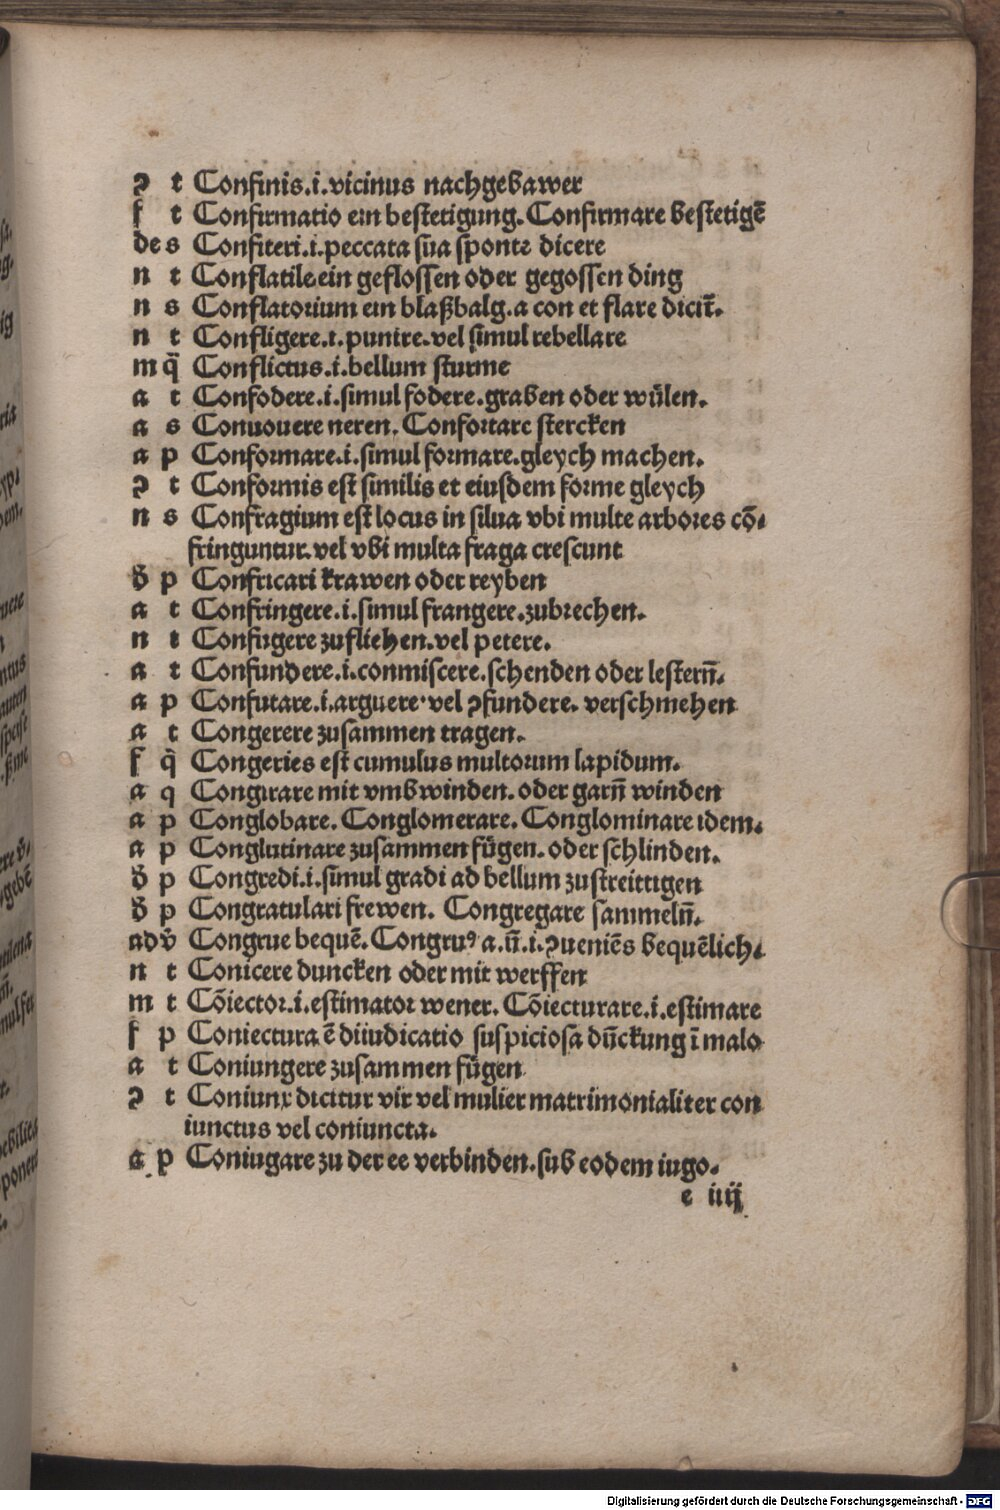 ꝯ t Confinis.i.vicinus nachgebawer
f t Confirmatio ein bestetigung. Confirmare bestetigē
de s Confiteri.i.peccata sua sponte dicere
n t Conflatile ein geflossen oder gegossen ding
n s Conflatorium ein blaßbalg.a con et flare dicit̄.
n t Confligere.i.punire.vel simul rebellare
m q̄ Conflictus.i.bellum sturme
a t Confodere.i.simul fodere.graben oder wülen.
a s Conuouere neren. Confortare stercken
a p Conformare.i.simul formare.gleych machen.
ꝯ t Conformis est similis et eiusdem forme gleych
n s Confragium est locus in silua vbi multe arbores cō-
fringuntur.vel vbi multa fraga crescunt
đ p Confricari krawen oder reyben
a t Confringere.i.simul frangere.zubrechen.
n t Confugere zufliehen.vel petere.
a t Confundere.i.conmiscere.schenden oder lestern̄.
a p Confutare.i.arguere.vel ꝯfundere. verschmehen
a t Congerere zusammen tragen.
f q̄ Congeries est cumulus multorum lapidum.
a q Congirare mit vmbwinden.oder garn̄ winden
a p Conglobare. Conglomerare. Conglominare idem.
a p Conglutinare zusammen fügen.oder schlinden.
đ p Congredi.i.simul gradi ad bellum zustreittigen
đ p Congratulari frewen. Congregare sammeln̄.
adv̄ Congrue bequē. Congruꝰ a.ū.i.ꝯueniēs bequēlich.
n t Conicere duncken oder mit werffen
m t Cōiector.i.estimator wener. Cōiecturare.i.estimare
f p Coniectura ē diiudicatio suspiciosa dūckung ī malo
a t Coniungere zusammen fügen
ꝯ t Coniunx dicitur vir vel mulier matrimonialiter con
iunctus vel coniuncta.
a p Coniugare zu der ee verbinden.sub eodem iugo.
e iiij
Digitalisierung gefördert durch die Deutsche Forschungsgemeinschaft - DFG